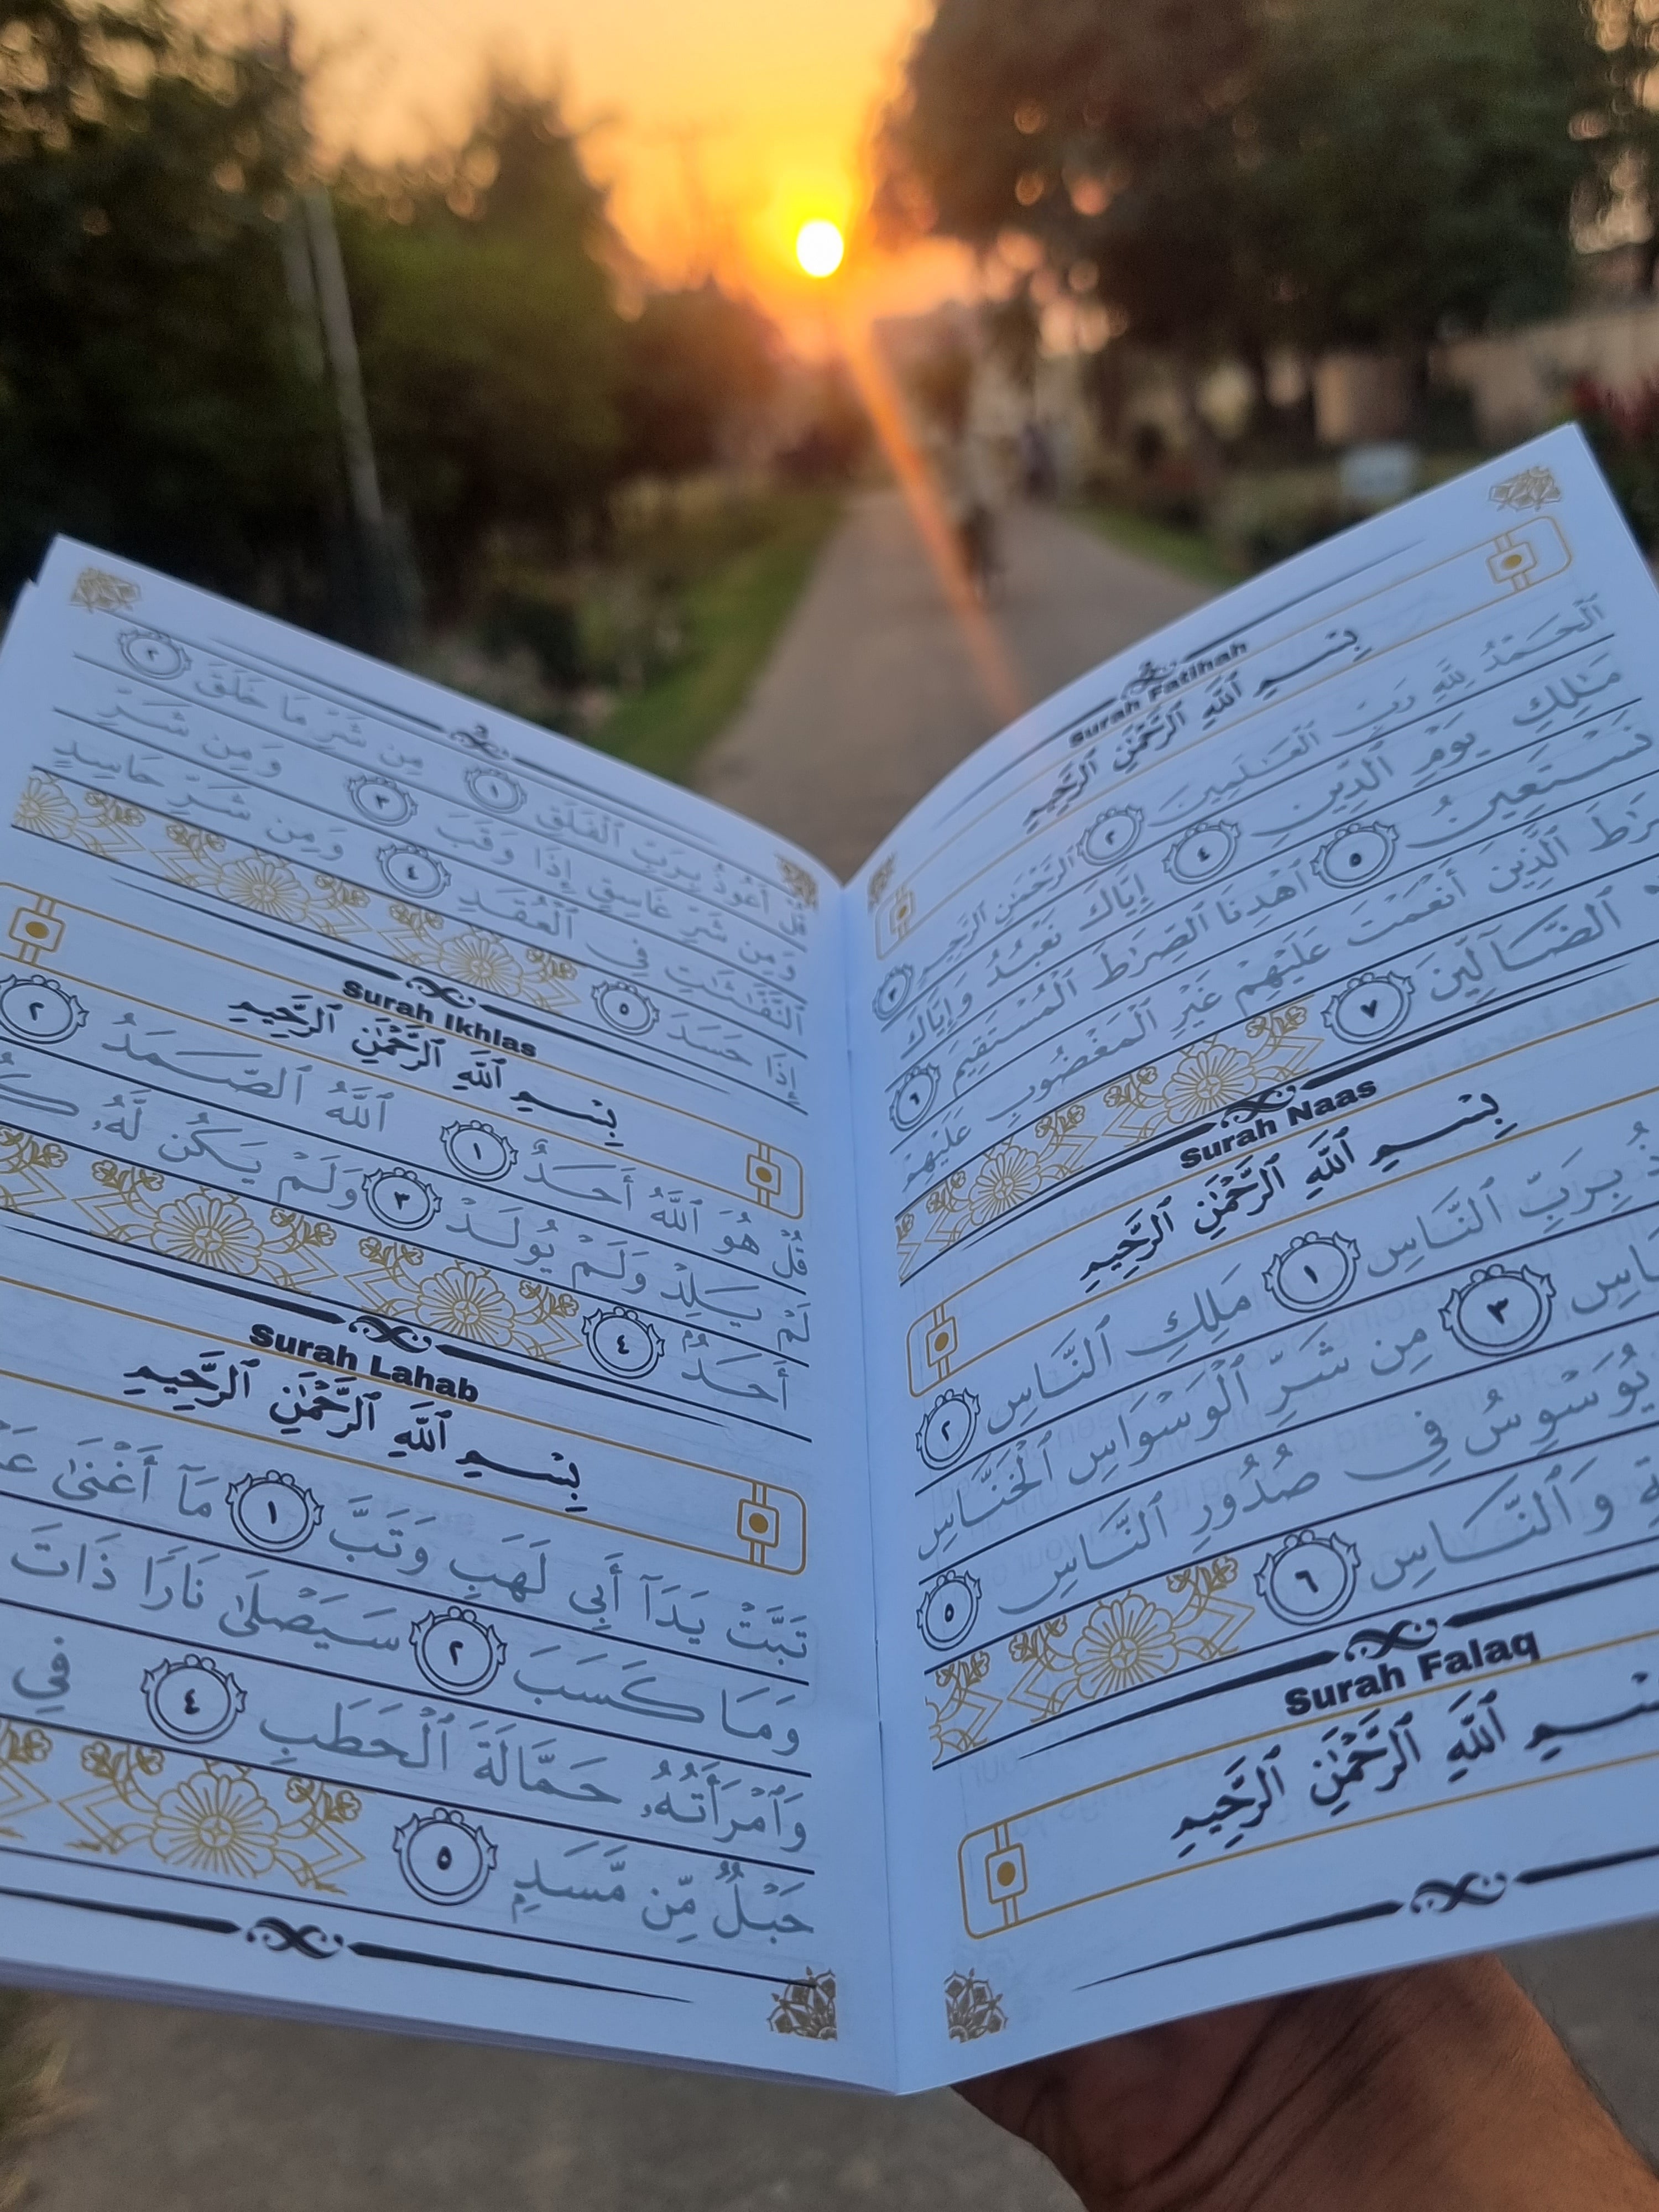 Surah Fatihah
بِسْمِ ٱللَّهِ ٱلرَّحْمَٰنِ ٱلرَّحِيمِ
ٱلْحَمْدُ لِلَّهِ رَبِّ ٱلْعَٰلَمِينَ ٢ ٱلرَّحْمَٰنِ ٱلرَّحِيمِ ٣
مَٰلِكِ يَوْمِ ٱلدِّينِ ٤ إِيَّاكَ نَعْبُدُ وَإِيَّاكَ
نَسْتَعِينُ ٥ ٱهْدِنَا ٱلصِّرَٰطَ ٱلْمُسْتَقِيمَ ٦
ٱلَّذِينَ أَنْعَمْتَ عَلَيْهِمْ غَيْرِ ٱلْمَغْضُوبِ عَلَيْهِمْ
ٱلضَّآلِّينَ ٧
Surah Naas
بِسْمِ ٱللَّهِ ٱلرَّحْمَٰنِ ٱلرَّحِيمِ
بِرَبِّ ٱلنَّاسِ ١ مَلِكِ ٱلنَّاسِ ٢
٣ مِن شَرِّ ٱلْوَسْوَاسِ ٱلْخَنَّاسِ
يُوَسْوِسُ فِي صُدُورِ ٱلنَّاسِ ٥
وَٱلنَّاسِ ٦
Surah Falaq
بِسْمِ ٱللَّهِ ٱلرَّحْمَٰنِ ٱلرَّحِيمِ
قُلْ أَعُوذُ بِرَبِّ ٱلْفَلَقِ ١ مِن شَرِّ مَا خَلَقَ ٢
وَمِن شَرِّ غَاسِقٍ إِذَا وَقَبَ ٣ وَمِن شَرِّ
ٱلنَّفَّٰثَٰتِ فِي ٱلْعُقَدِ ٤ وَمِن شَرِّ حَاسِدٍ
إِذَا حَسَدَ ٥
Surah Ikhlas
بِسْمِ ٱللَّهِ ٱلرَّحْمَٰنِ ٱلرَّحِيمِ
قُلْ هُوَ ٱللَّهُ أَحَدٌ ١ ٱللَّهُ ٱلصَّمَدُ ٢
لَمْ يَلِدْ وَلَمْ يُولَدْ ٣ وَلَمْ يَكُن لَّهُۥ
أَحَدٌۢ ٤
Surah Lahab
بِسْمِ ٱللَّهِ ٱلرَّحْمَٰنِ ٱلرَّحِيمِ
تَبَّتْ يَدَآ أَبِي لَهَبٍ وَتَبَّ ١ مَآ أَغْنَىٰ
وَمَا كَسَبَ ٢ سَيَصْلَىٰ نَارًا ذَاتَ
وَٱمْرَأَتُهُۥ حَمَّالَةَ ٱلْحَطَبِ ٤ فِي
حَبْلٌ مِّن مَّسَدٍۭ ٥